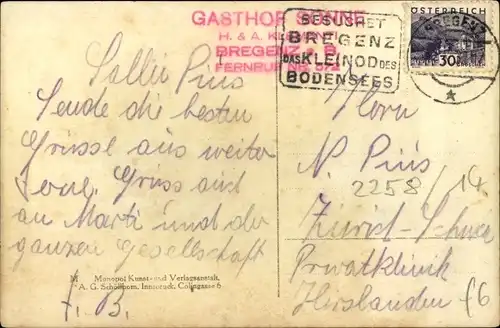 GASTHOF SONNE
H. & A.
BREGENZ a. B.
FERNRUF NR.
BESUCHET
BREGENZ
DAS KLEINOD DES
BODENSEES
ÖSTERREICH
30
BREGENZ
Sallü Pius
Sende die besten
Grüsse aus weiter
Gruss auch
an Marti und der
ganzen Gesellschaft
Herrn
N. Pius
2258/14
Zürich
Privatklinik
Hirslanden
Monopol Kunst- und Verlagsanstalt,
A. G. Schöllhorn, Innsbruck, Cölingasse 6